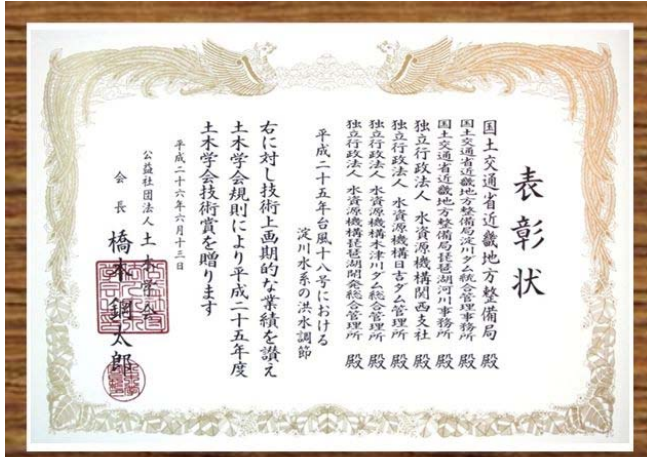 表彰状
国土交通省近畿地方整備局 殿
国土交通省近畿地方整備局淀川ダム統合管理事務所 殿
国土交通省近畿地方整備局琵琶湖河川事務所 殿
独立行政法人 水資源機構関西支社 殿
独立行政法人 水資源機構日吉ダム管理所 殿
独立行政法人 水資源機構木津川ダム総合管理所 殿
独立行政法人 水資源機構琵琶湖開発総合管理所 殿
平成二十五年台風十八号における
淀川水系の洪水調節
右に対し技術上画期的な業績を讃え
土木学会規則により平成二十五年度
土木学会技術賞を贈ります
平成二十六年六月十三日
公益社団法人 土木学会
会長 橋本 鋼太郎